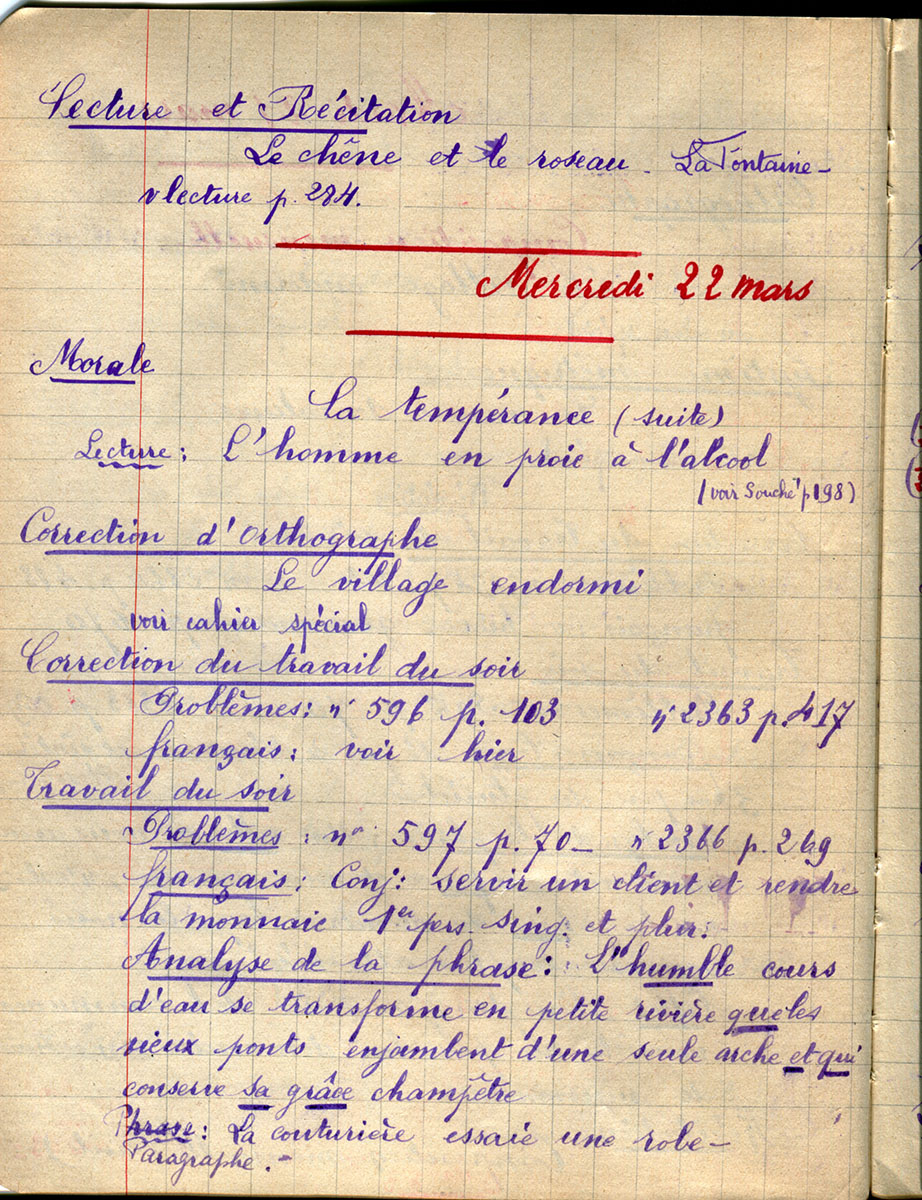 Lecture et Récitation
Le chêne et le roseau _ La Fontaine _
v lecture p. 284.
Mercredi 22 mars
Morale
La tempérance (suite)
Lecture : L'homme en proie à l'alcool
(voir Souché p 198)
Correction d'Orthographe
Le village endormi
voir cahier spécial
Correction du travail du soir
Problèmes : n° 596 p. 103 n° 2363 p. 417
français : voir hier
Travail du soir
Problèmes : n° 597 p. 70 _ n° 2366 p. 269
français : Conj : servir un client et rendre
la monnaie 1er pers. sing. et plur.
Analyse de la phrase : L'humble cours
d'eau se transforme en petite rivière que les
vieux ponts enjambent d'une seule arche et qui
conserve sa grâce champêtre
Phrase : La couturière essaie une robe _
Paragraphe . _